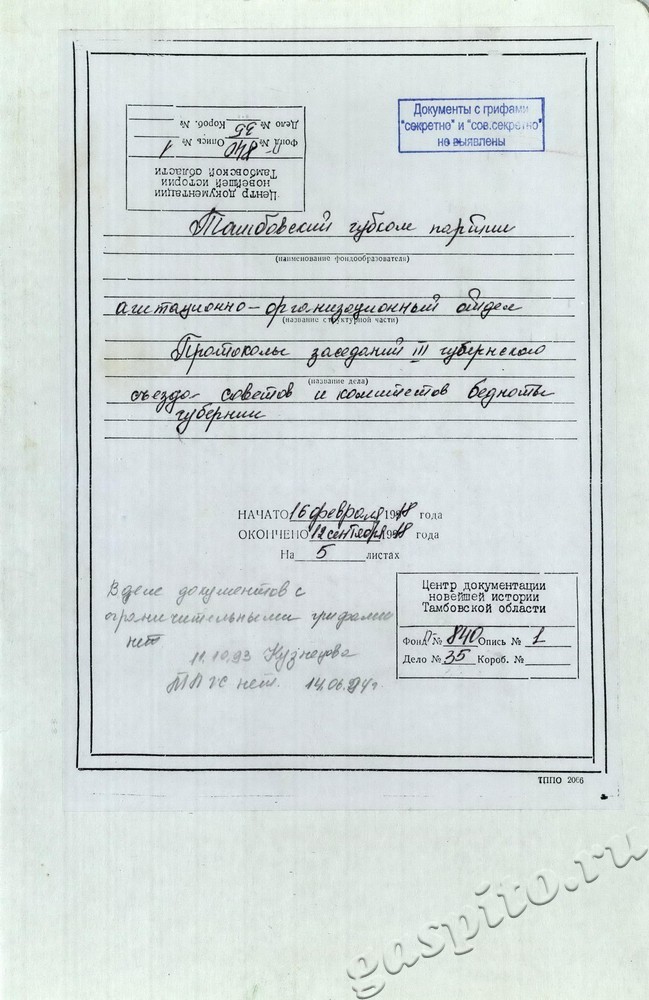 Документы с грифами
"секретно" и "сов.секретно"
не выявлены
Центр документации
новейшей истории
Тамбовской области
Фонд П № 840 Опись № 1
Дело № 35 Короб. №
Тамбовский губком партии
(наименование фондообразователя)
агитационно-организационный отдел
(название структурной части)
Протоколы заседаний III губернского
(название дела)
съезда советов и комитетов бедноты
губернии
НАЧАТО 16 февраля 1918 года
ОКОНЧЕНО 12 сентября 1918 года
На 5 листах
В деле документов с
ограничительными грифами
нет
11.10.93 Кузнецова
нет. 14.06.94г.
Центр документации
новейшей истории
Тамбовской области
Фонд П- № 840 Опись № 1
Дело № 35 Короб. №
ТППО 2066
gaspito.ru